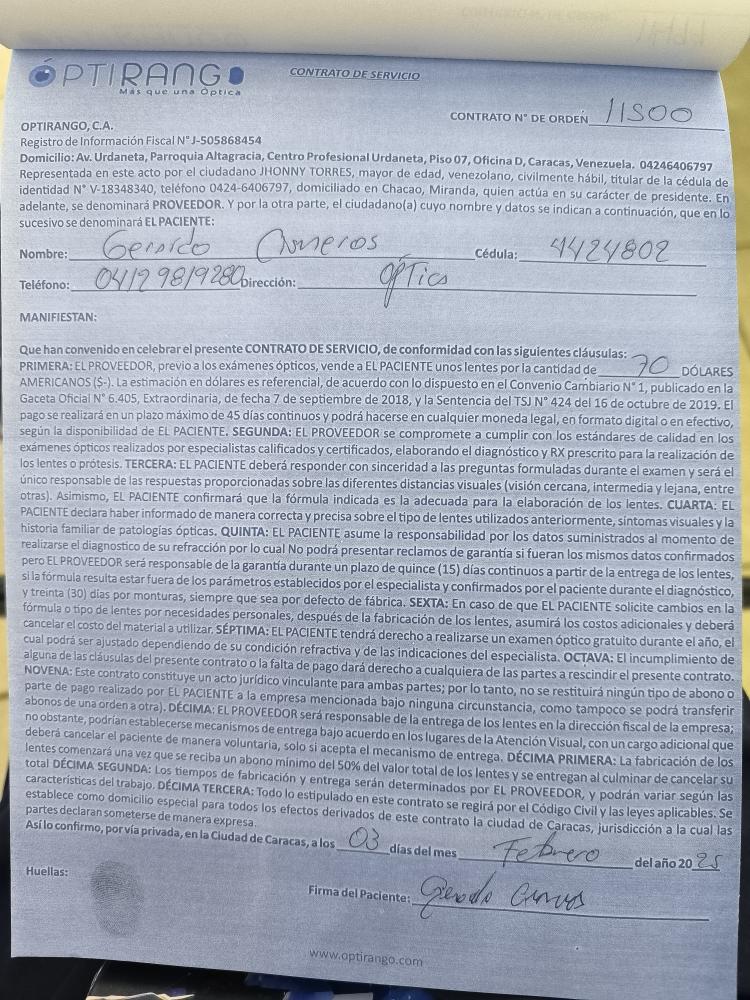 OPTIRANGO
Más que una Óptica
CONTRATO DE SERVICIO
CONTRATO N° DE ORDEN 11500
OPTIRANGO, C.A.
Registro de Información Fiscal N° J-505868454
Domicilio: Av. Urdaneta, Parroquia Altagracia, Centro Profesional Urdaneta, Piso 07, Oficina D, Caracas, Venezuela. 04246406797
Representada en este acto por el ciudadano JHONNY TORRES, mayor de edad, venezolano, civilmente hábil, titular de la cédula de
identidad N° V-18348340, teléfono 0424-6406797, domiciliado en Chacao, Miranda, quien actúa en su carácter de presidente. En
adelante, se denominará PROVEEDOR. Y por la otra parte, el ciudadano(a) cuyo nombre y datos se indican a continuación, que en lo
sucesivo se denominará EL PACIENTE:
Nombre: Gerardo Cisneros Cédula: 4424802
Teléfono: 04129819280 Dirección: óptica
MANIFIESTAN:
Que han convenido en celebrar el presente CONTRATO DE SERVICIO, de conformidad con las siguientes cláusulas:
PRIMERA: EL PROVEEDOR, previo a los exámenes ópticos, vende a EL PACIENTE unos lentes por la cantidad de 70 DÓLARES
AMERICANOS ($-). La estimación en dólares es referencial, de acuerdo con lo dispuesto en el Convenio Cambiario N° 1, publicado en la
Gaceta Oficial N° 6.405, Extraordinaria, de fecha 7 de septiembre de 2018, y la Sentencia del TSJ N° 424 del 16 de octubre de 2019. El
pago se realizará en un plazo máximo de 45 días continuos y podrá hacerse en cualquier moneda legal, en formato digital o en efectivo,
según la disponibilidad de EL PACIENTE. SEGUNDA: EL PROVEEDOR se compromete a cumplir con los estándares de calidad en los
exámenes ópticos realizados por especialistas calificados y certificados, elaborando el diagnóstico y RX prescrito para la realización de
los lentes o prótesis. TERCERA: EL PACIENTE deberá responder con sinceridad a las preguntas formuladas durante el examen y será el
único responsable de las respuestas proporcionadas sobre las diferentes distancias visuales (visión cercana, intermedia y lejana, entre
otras). Asimismo, EL PACIENTE confirmará que la fórmula indicada es la adecuada para la elaboración de los lentes. CUARTA: EL
PACIENTE declara haber informado de manera correcta y precisa sobre el tipo de lentes utilizados anteriormente, síntomas visuales y la
historia familiar de patologías ópticas. QUINTA: EL PACIENTE asume la responsabilidad por los datos suministrados al momento de
realizarse el diagnostico de su refracción por lo cual No podrá presentar reclamos de garantía si fueran los mismos datos confirmados
pero EL PROVEEDOR será responsable de la garantía durante un plazo de quince (15) días continuos a partir de la entrega de los lentes,
si la fórmula resulta estar fuera de los parámetros establecidos por el especialista y confirmados por el paciente durante el diagnóstico,
y treinta (30) días por monturas, siempre que sea por defecto de fábrica. SEXTA: En caso de que EL PACIENTE solicite cambios en la
fórmula o tipo de lentes por necesidades personales, después de la fabricación de los lentes, asumirá los costos adicionales y deberá
cancelar el costo del material a utilizar. SÉPTIMA: EL PACIENTE tendrá derecho a realizarse un examen óptico gratuito durante el año, el
cual podrá ser ajustado dependiendo de su condición refractiva y de las indicaciones del especialista. OCTAVA: El incumplimiento de
alguna de las cláusulas del presente contrato o la falta de pago dará derecho a cualquiera de las partes a rescindir el presente contrato.
NOVENA: Este contrato constituye un acto jurídico vinculante para ambas partes; por lo tanto, no se restituirá ningún tipo de abono o
parte de pago realizado por EL PACIENTE a la empresa mencionada bajo ninguna circunstancia, como tampoco se podrá transferir
abonos de una orden a otra). DÉCIMA: EL PROVEEDOR será responsable de la entrega de los lentes en la dirección fiscal de la empresa;
no obstante, podrían establecerse mecanismos de entrega bajo acuerdo en los lugares de la Atención Visual, con un cargo adicional que
deberá cancelar el paciente de manera voluntaria, solo si acepta el mecanismo de entrega. DÉCIMA PRIMERA: La fabricación de los
lentes comenzará una vez que se reciba un abono mínimo del 50% del valor total de los lentes y se entregan al culminar de cancelar su
total DÉCIMA SEGUNDA: Los tiempos de fabricación y entrega serán determinados por EL PROVEEDOR, y podrán variar según las
características del trabajo. DÉCIMA TERCERA: Todo lo estipulado en este contrato se regirá por el Código Civil y las leyes aplicables. Se
establece como domicilio especial para todos los efectos derivados de este contrato la ciudad de Caracas, jurisdicción a la cual las
partes declaran someterse de manera expresa.
Así lo confirmo, por vía privada, en la Ciudad de Caracas, a los 03 días del mes Febrero del año 2025
Huellas:
Firma del Paciente: Gerardo Cisneros
www.optirango.com